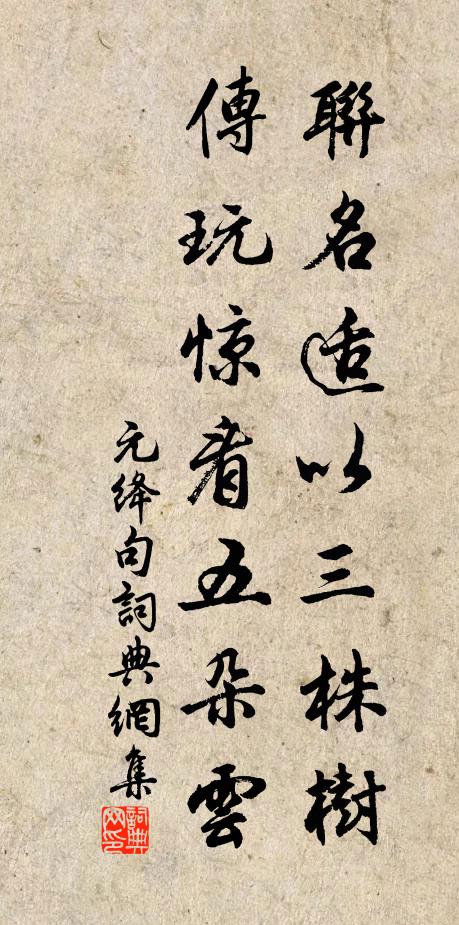 聯名適以三株樹
傳玩惊看五朵雲
元絳句詞典網集
詞典网印